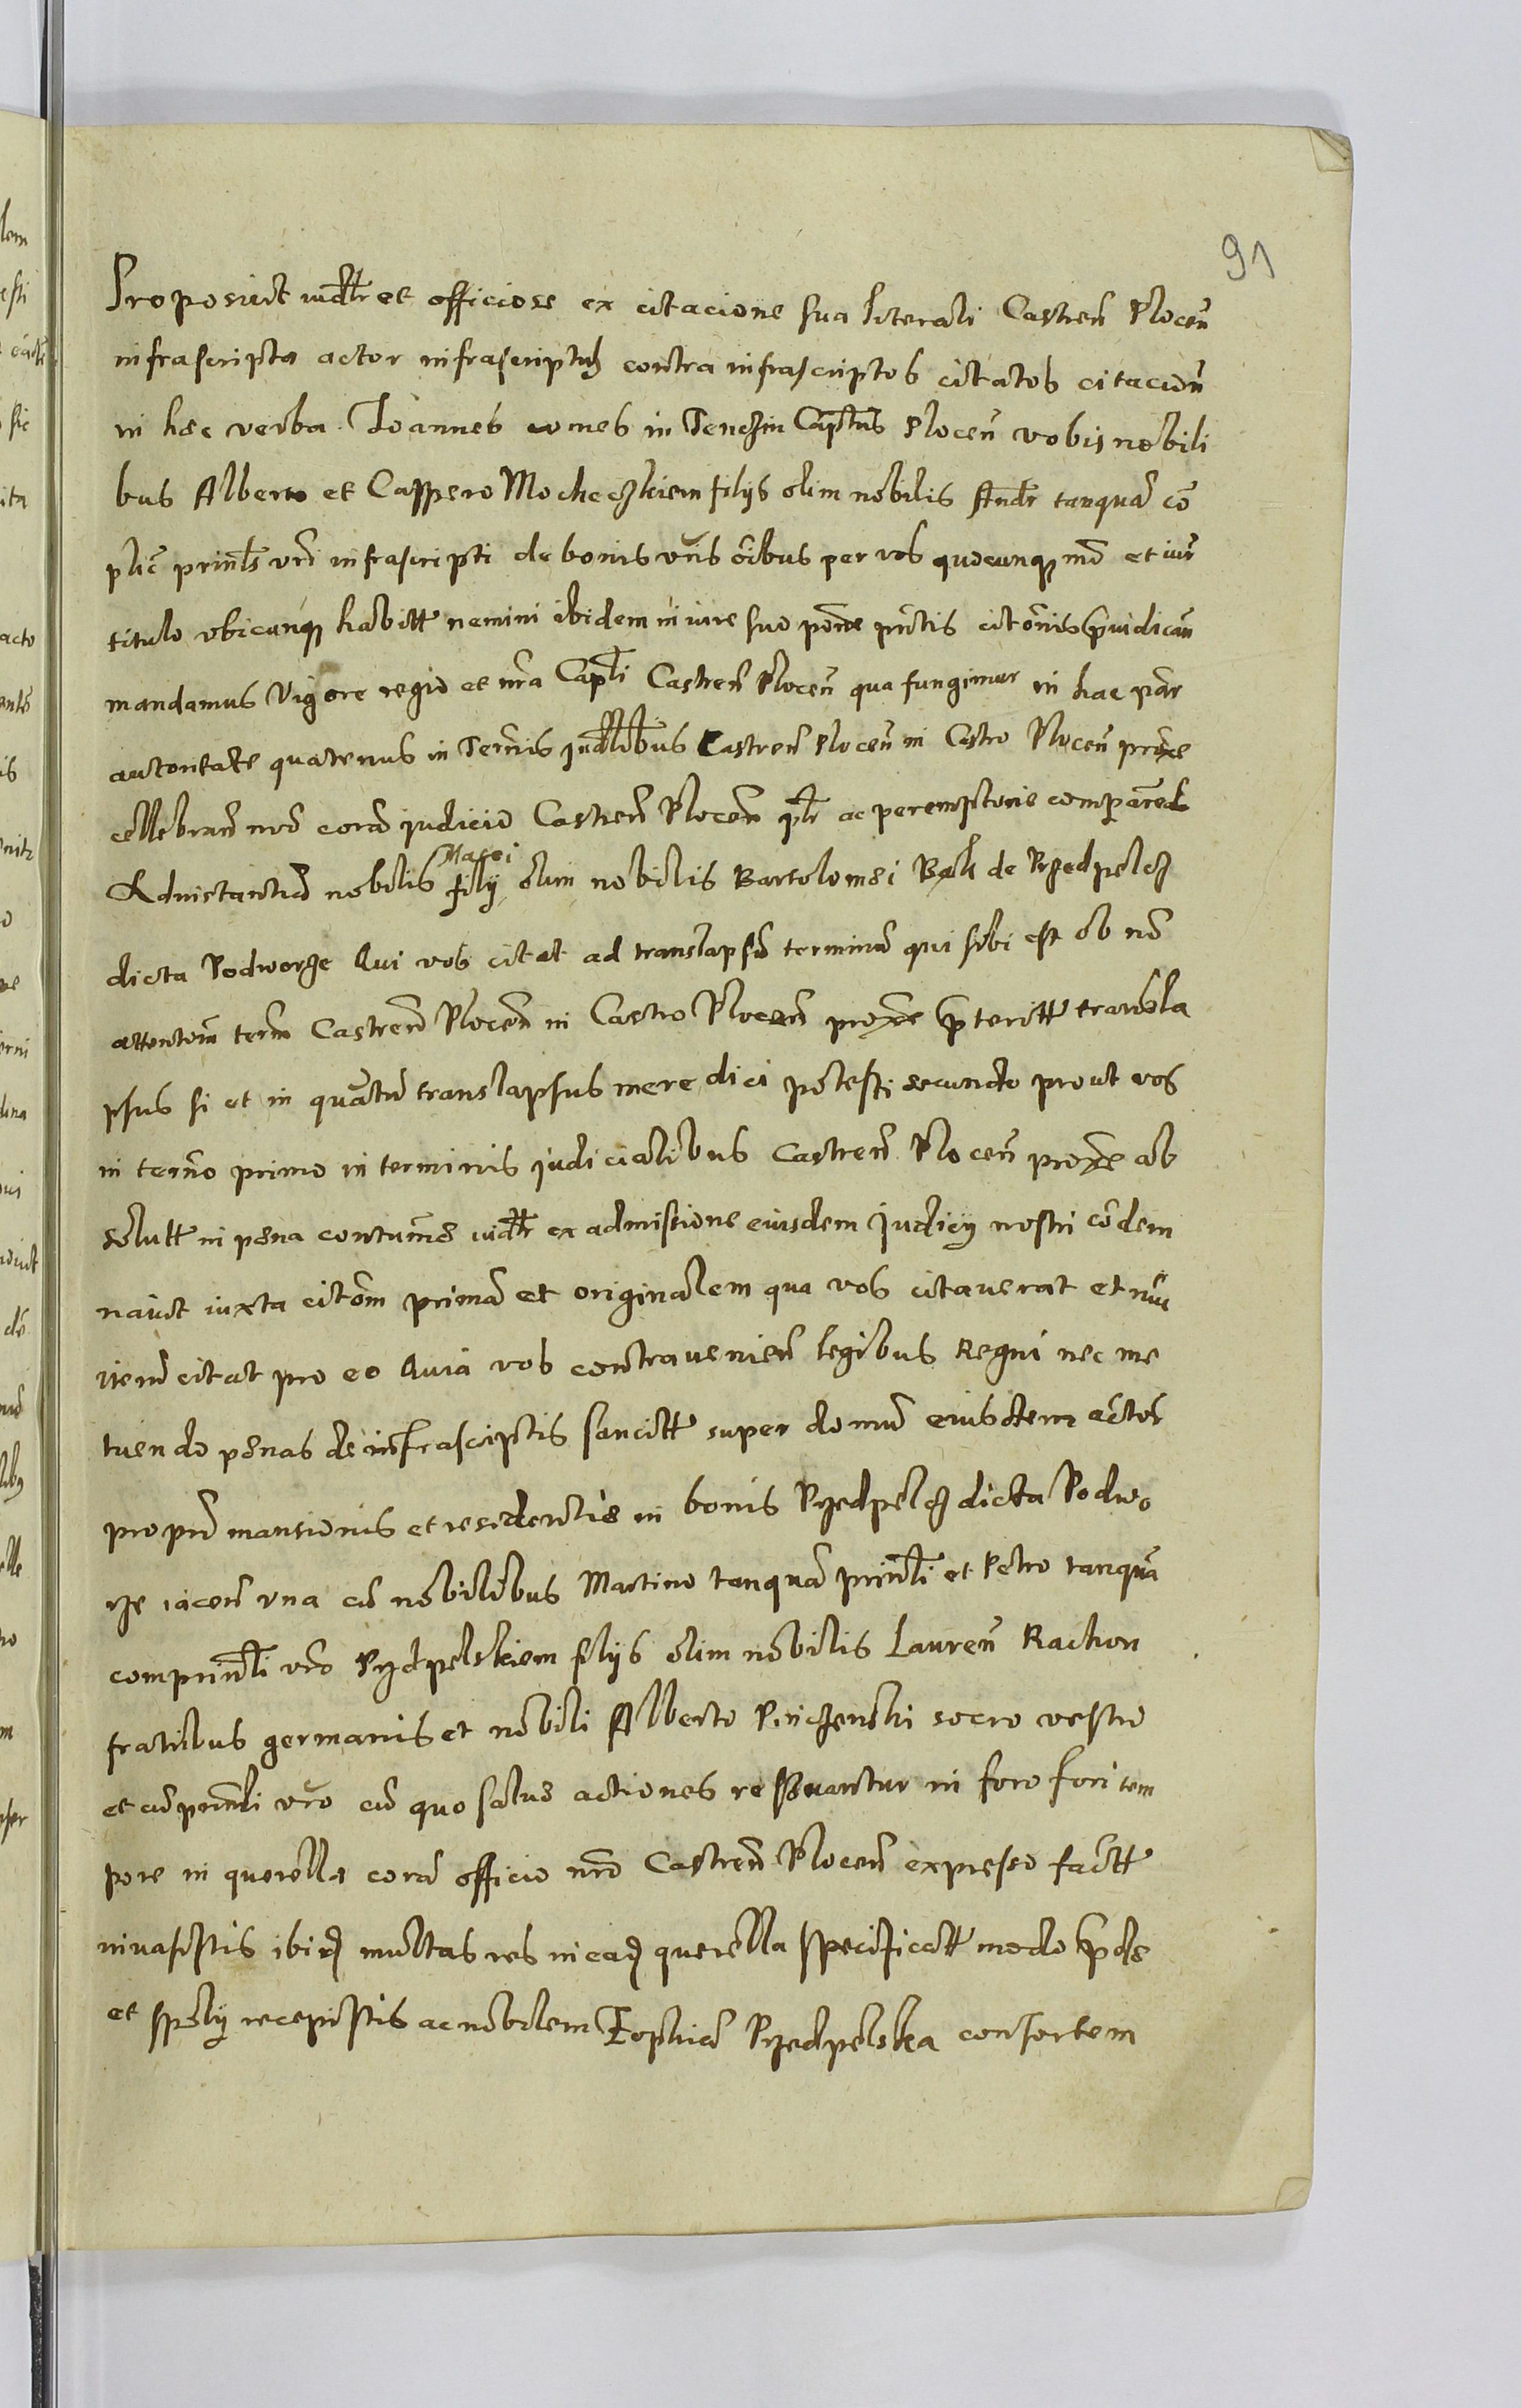 91
Proposuit iudltr et officiose ex citacione sua literali Castren Plocen
infrascripta actor infrascriptus contra infrascriptos citatos citacion
in hec verba Ioannes comes in Tenczin Captus Plocen vobis nobili
bus Alberto et Casppero Mochczkiem filys olim nobilis Andr tanqua co
plic prinls vri infrascripti de bonis vris oibus per vos quocunq mo et iur
titulo vbicunq habitt nemini ibidem in iure suo pone pntis citonis piudican
mandamus Vigore regio et nra Capli Castren Plocen qua fungimur in hac par
autoritate quatenus in Terminis Judlibus Castren Plocen in Castro Plocen proxe
cellebran nro cora iudicio Castren Plocen plr ac peremptorie compareat
Adinstantia nobilis Mathei fily olim nobilis Bartolomei de Przedpelcz
dicta Podworze Qui vos citat ad translapsu terminu qui sibi est ob no
attentom term Castren Plocen in Castro Plocen proxe pteritt transla
psus si et in quatu translapsus mere dici potest secundo prout vos
in termo primo in terminis judicialibus Castren Plocen proxe ab
solutt in pena contume iudltr ex admissione eiusdem Judicy nostri condem
nauit iuxta citom prima et originalem qua vos citauerat et nuc
item citat pro eo Quia vos contrauenien legibus Regni nec me
tuendo penas de infrascriptis sancitt super domu eiusdem actor
propri mansionis et residentie in bonis Przedpelcz dicta Podwo
rze iacen vna cu nobilibus Martino tanqua prinli et Petro tanqua
comprinli vro Przdpelskiem filys olim nobilis Lauren Rachon
fratribus germanis et nobili Alberto socro vestro
et cu prinli vro cu quo salue actiones resseruantur in foro fori tem
pore in querella cora officio nro Castren Plocen expresso factt
inuasistis ibid multas res in ead querella specificatt modo pde
et spoly recepistis ac nobilem Zophia Przedpelska consortem